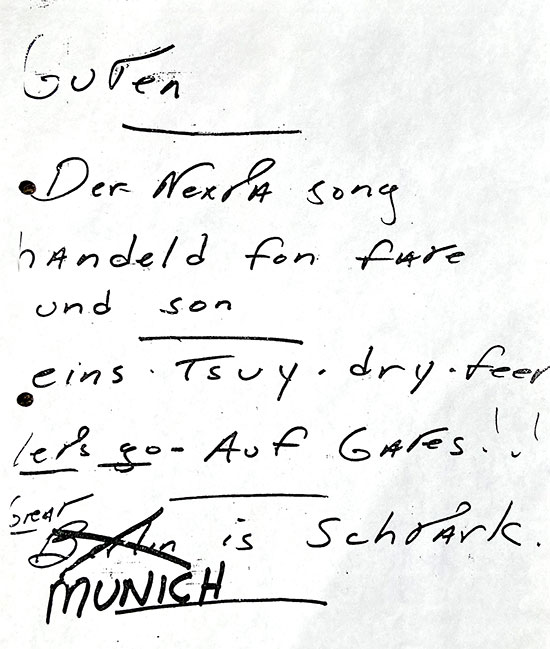 GUTen
Der NexstA song
hAndeld fon fAre
und son
eins. Tsuy. dry. feer
let's go- Auf GATes!!
Great
Berlin is SchtArk.
MUNICH